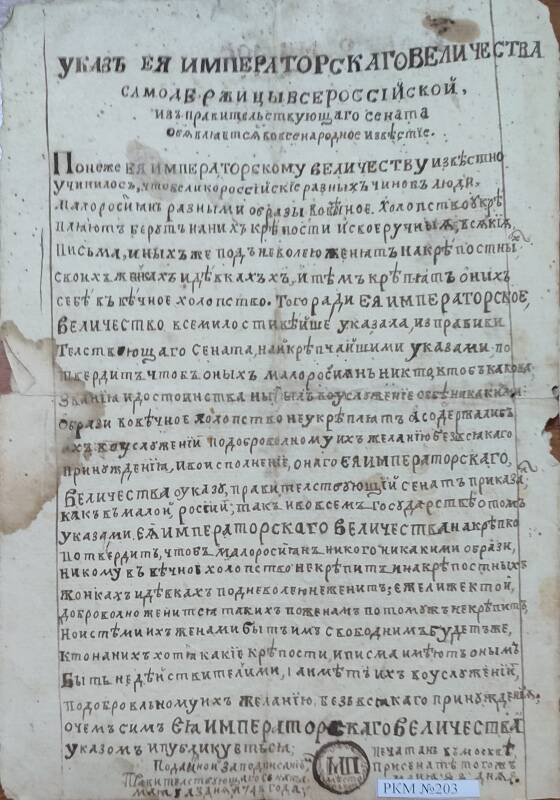 УКАЗЪ ЕЯ ИМПЕРАТОРСКАГО ВЕЛИЧЕСТВА
САМОДЕРЖИЦЫ ВСЕРОССІЙСКОЙ,
изъ правителствующаго сената
Объявляется вовсенародное извѣстіе.
Понеже ЕЯ ИМПЕРАТОРСКОМУ ВЕЛИЧЕСТВУ извѣстно
учинилось, что великороссійскіе разныхъ чиновъ люди,
малоросіянъ разными образы вовѣчное холопство укрѣ
пляютъ берутъ на нихъ крѣпости и своеручныя, всякія
письма, иныхъ же подъ неволею женятъ на крѣпостны
своихъ женкахъ и дѣвкахъ, и тѣмъ крѣпятъ оныхъ
себѣ въ вѣчное холопство. Того ради ЕЯ ИМПЕРАТОРСКОЕ
ВЕЛИЧЕСТВО всемилостивѣйше указала, изъ правиви
телствующаго Сената, наикрѣпчайшими указами по
твердить чтобъ оныхъ малоросіянъ никто, ктобъ какова
званія и достоинства ны былъ воуслуженіе себѣ никаким
образи вовѣчное холопство неукрѣплятъ, а содержалибъ
ихъ воуслуженіи подобровольному ихъ желанію безвсякаго
принужденія, и воисполненіе, онаго ЕЯ ИМПЕРАТОРСКАГО,
ВЕЛИЧЕСТВА указу, правителствующій сенатъ приказа
какъ въ малой россіи; такъ и вовсемъ государствѣ отомъ
указами, ЕЯ ИМПЕРАТОРСКАГО ВЕЛИЧЕСТВА накрѣпко
потвердить, чтобъ малоросіянъ никого никакими образи,
никому въ вѣчное холопство некрѣпить и накрѣпостныхъ
жонкахъ и дѣвкахъ подневолею неженить; ежели же ктой
доброволно женится такихъ по женамъ потомужъ некрѣпить,
но истеми ихъ женами быть имъ свободнимъ будетъ же,
кто на нихъ хотя какіе крѣпости, и писма имѣютъ онымъ
быть не дѣйствителими, а имѣть ихъ воуслуженіи,
подобровльному ихъ желанію, безвсякаго принужденія,
очемъ симъ ЕЯ ИМПЕРАТОРСКАГО ВЕЛИЧЕСТВА
указомъ и публикуется;
Печатанъ въ москвѣ
Присенате тогожъ
РКМ №203